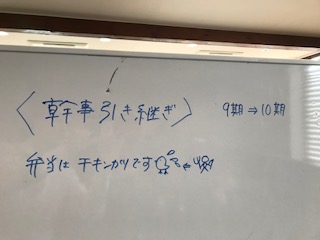 〈幹事引き継ぎ〉 9期⇒10期
弁当はチキンカツです